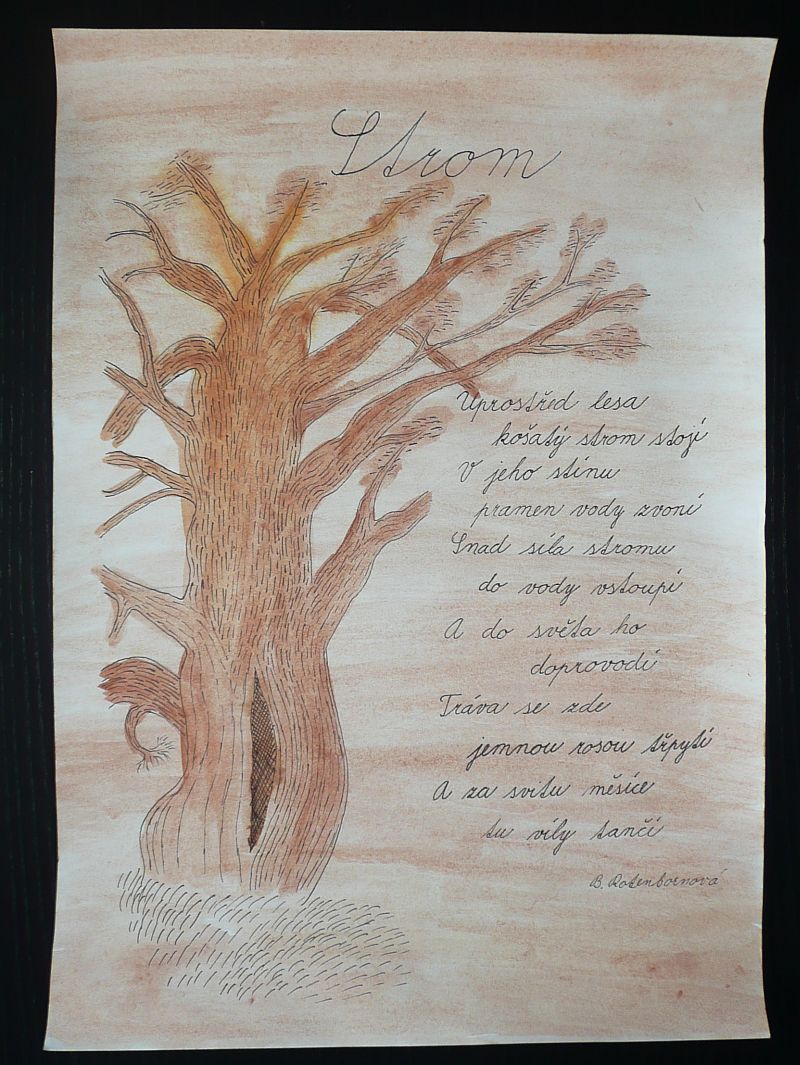 Strom
Uprostřed lesa
košatý strom stojí
V jeho stínu
pramen vody zvoní
Snad síla stromu
do vody vstoupí
A do světa ho
doprovodí
Tráva se zde
jemnou rosou třpytí
A za svitu měsíce
tu víly tančí
B. Rotenbornová